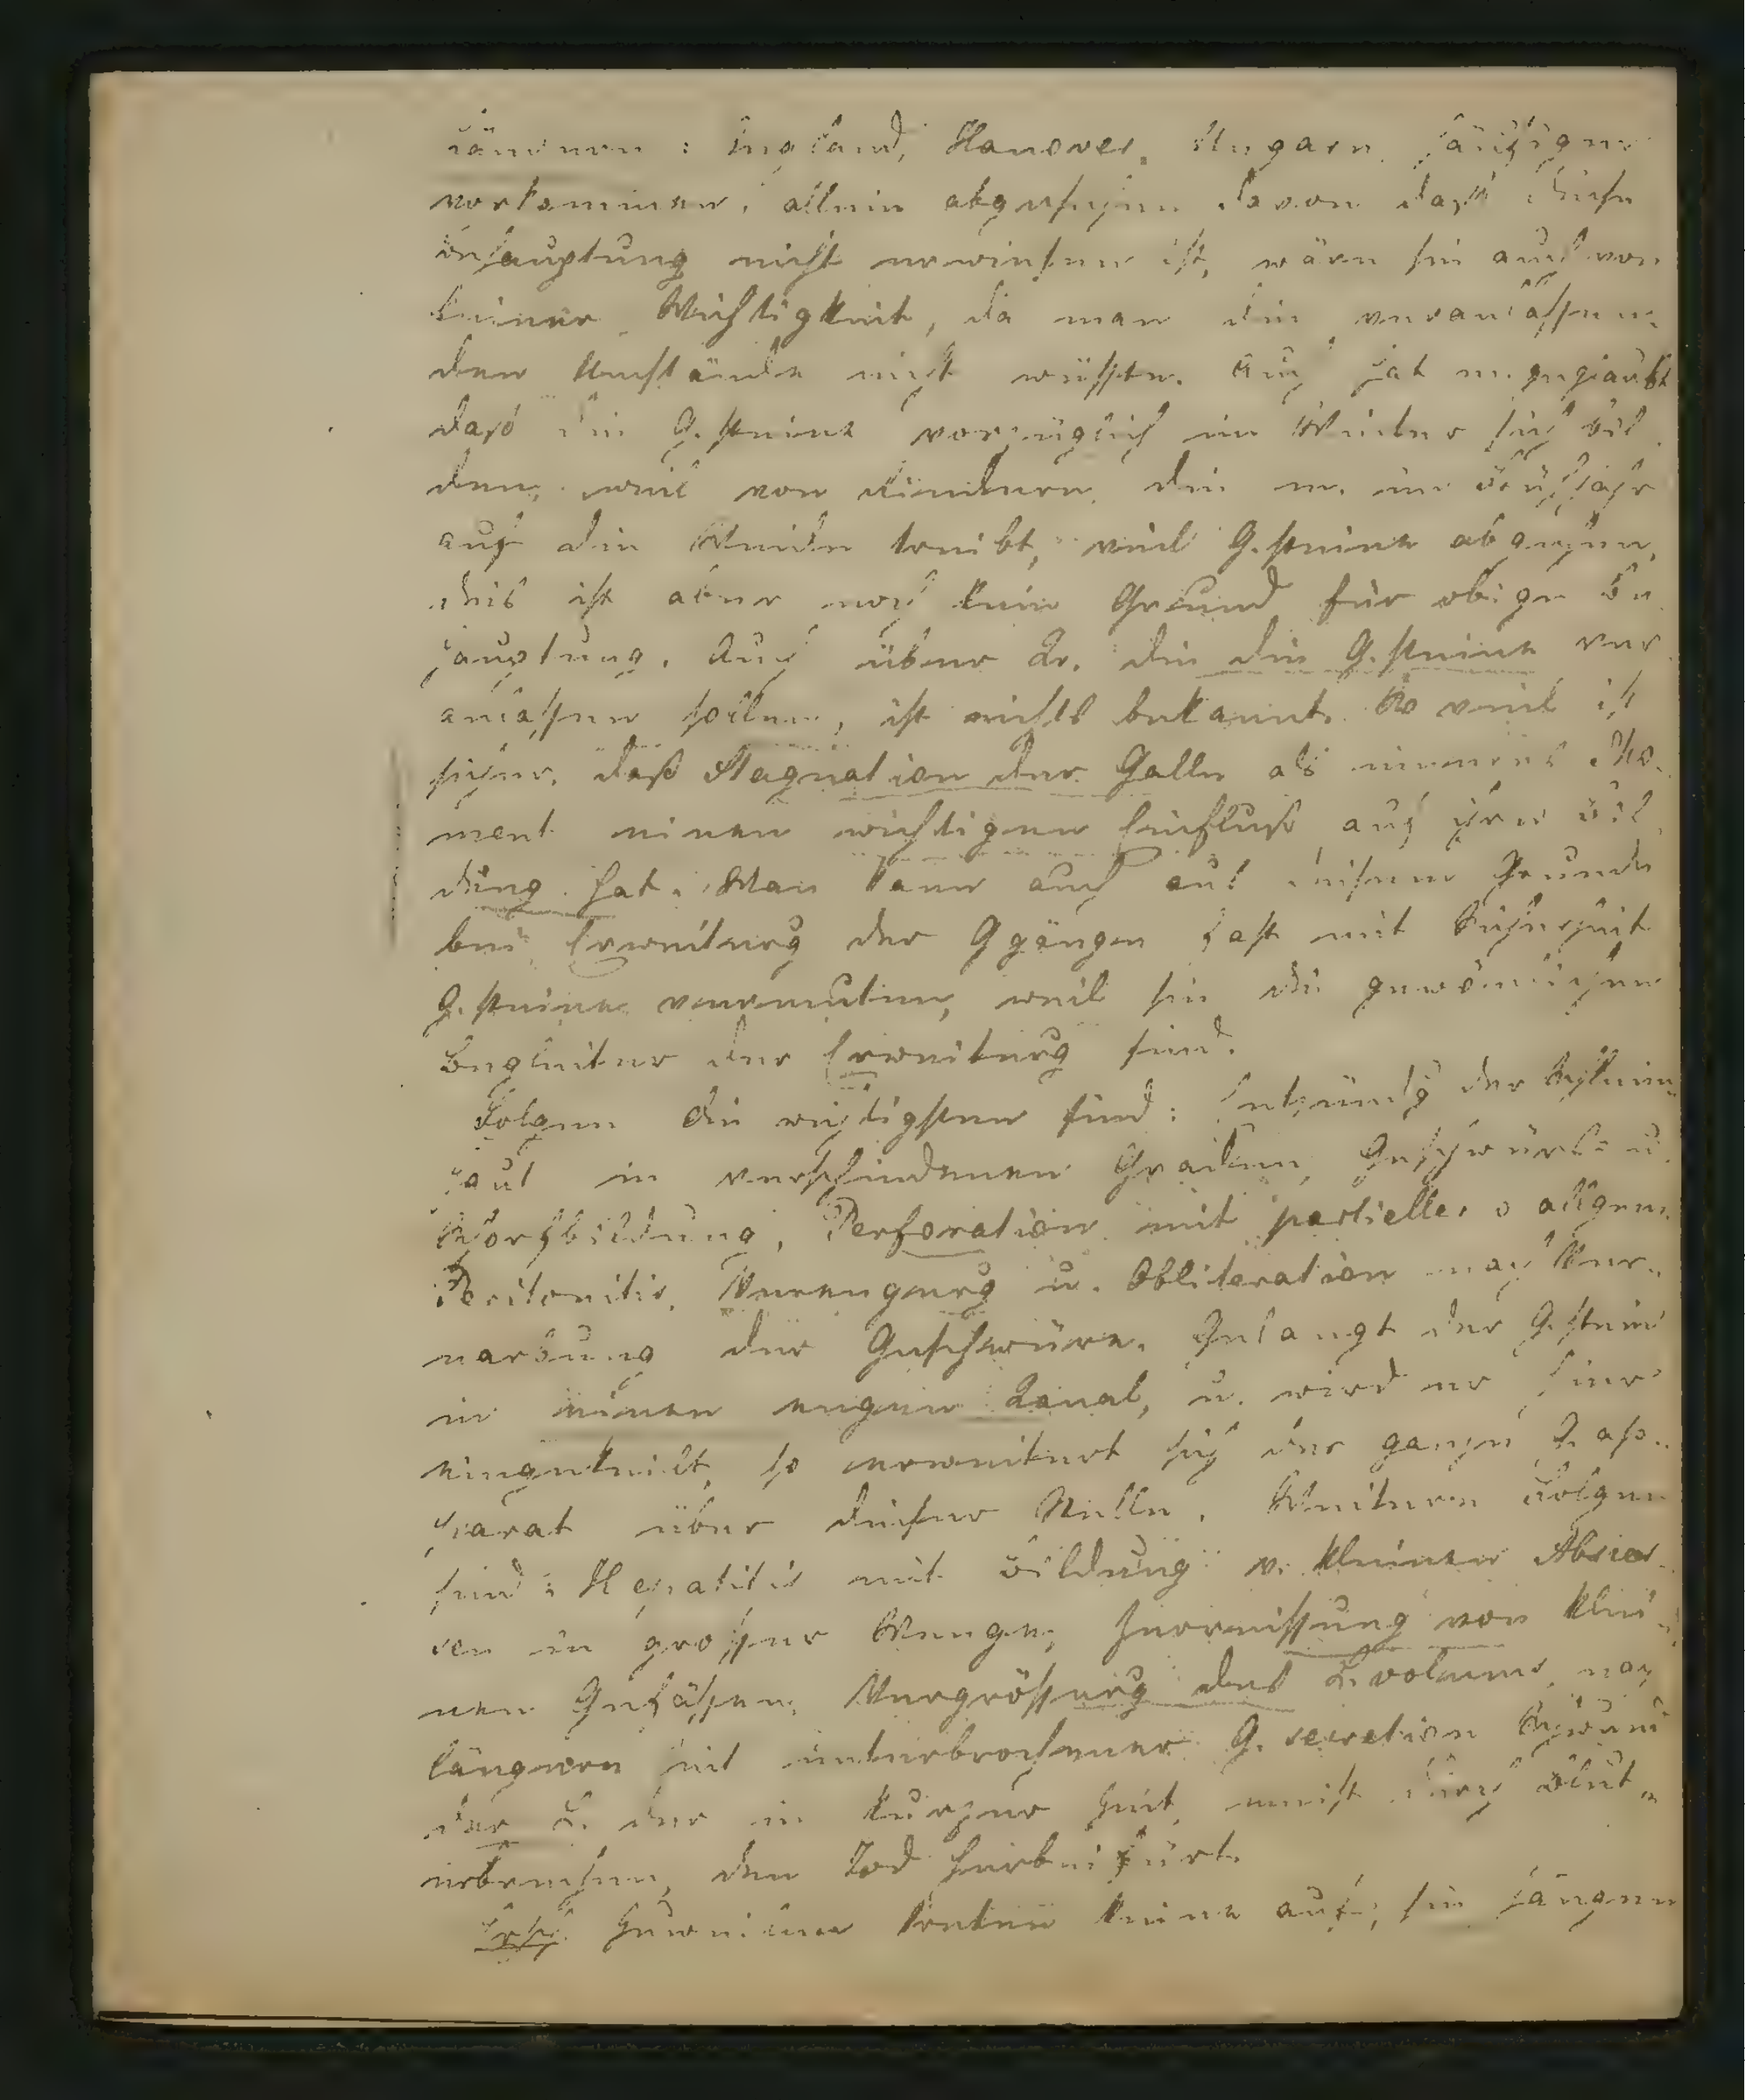 ländern: England, Hanover, Ungarn häufiger
vorkommen, allein abgesehen davon daß diese
Behauptung nicht erwiesen ist, wäre sie auch von
keiner Wichtigkeit, da man die veranlassen-
den Umstände nicht wüßte. Auch hat m. geglaubt
daß die G.steine vorzüglich im Winter sich bil-
den, weil von Rindern, die m. im Frühjahr
auf die Weide treibt, viele G.steine abgehen,
dies ist aber noch kein Grund für obige Be-
hauptung. Auch über Kr. die die G.steine ver-
anlassen sollen, ist nichts bekannt. So viel ist
sicher, daß Stagnation der Galle als mechan. Mo-
ment einen wichtigen Einfluß auf ihre Bil-
dung hat. Man kann auch aus diesem Grunde
bei Erweiterg der Ggängen fast mit Sicherheit
G.steine vermuten, weil sie die gewöhnlichen
Begleiter der Erweiterg sind.
Folgen die wichtigsten sind: Entzündg der Schleim-
haut in verschiedenen Graden, Geschwürs- u.
Schorfbildung, Perforation mit partieller o allgem.
Peritonitis, Verengerg u. Obliteration nach Ver-
narbung der Geschwüre. Gelangt der G.stein
in einen engen Kanal, u. wird er hier
eingekeilt, so erweitert sich der ganze G.ap-
parat über dieser Stelle. Weitere Folgen
sind: Hepatitis mit Bildung v. kleinen Absces-
sen in grosser Menge, Zerreissung von klei-
nen Gefäßen, Vergrösserg des L.volums, nach
längerer mit unterbrochener G.secretion Schwund
der L. der in kurzer Zeit, meist durch Blut-
erbrechen, den Tod herbeiführt.
Ersch. Zuweilen treten keine auf, sie hängen